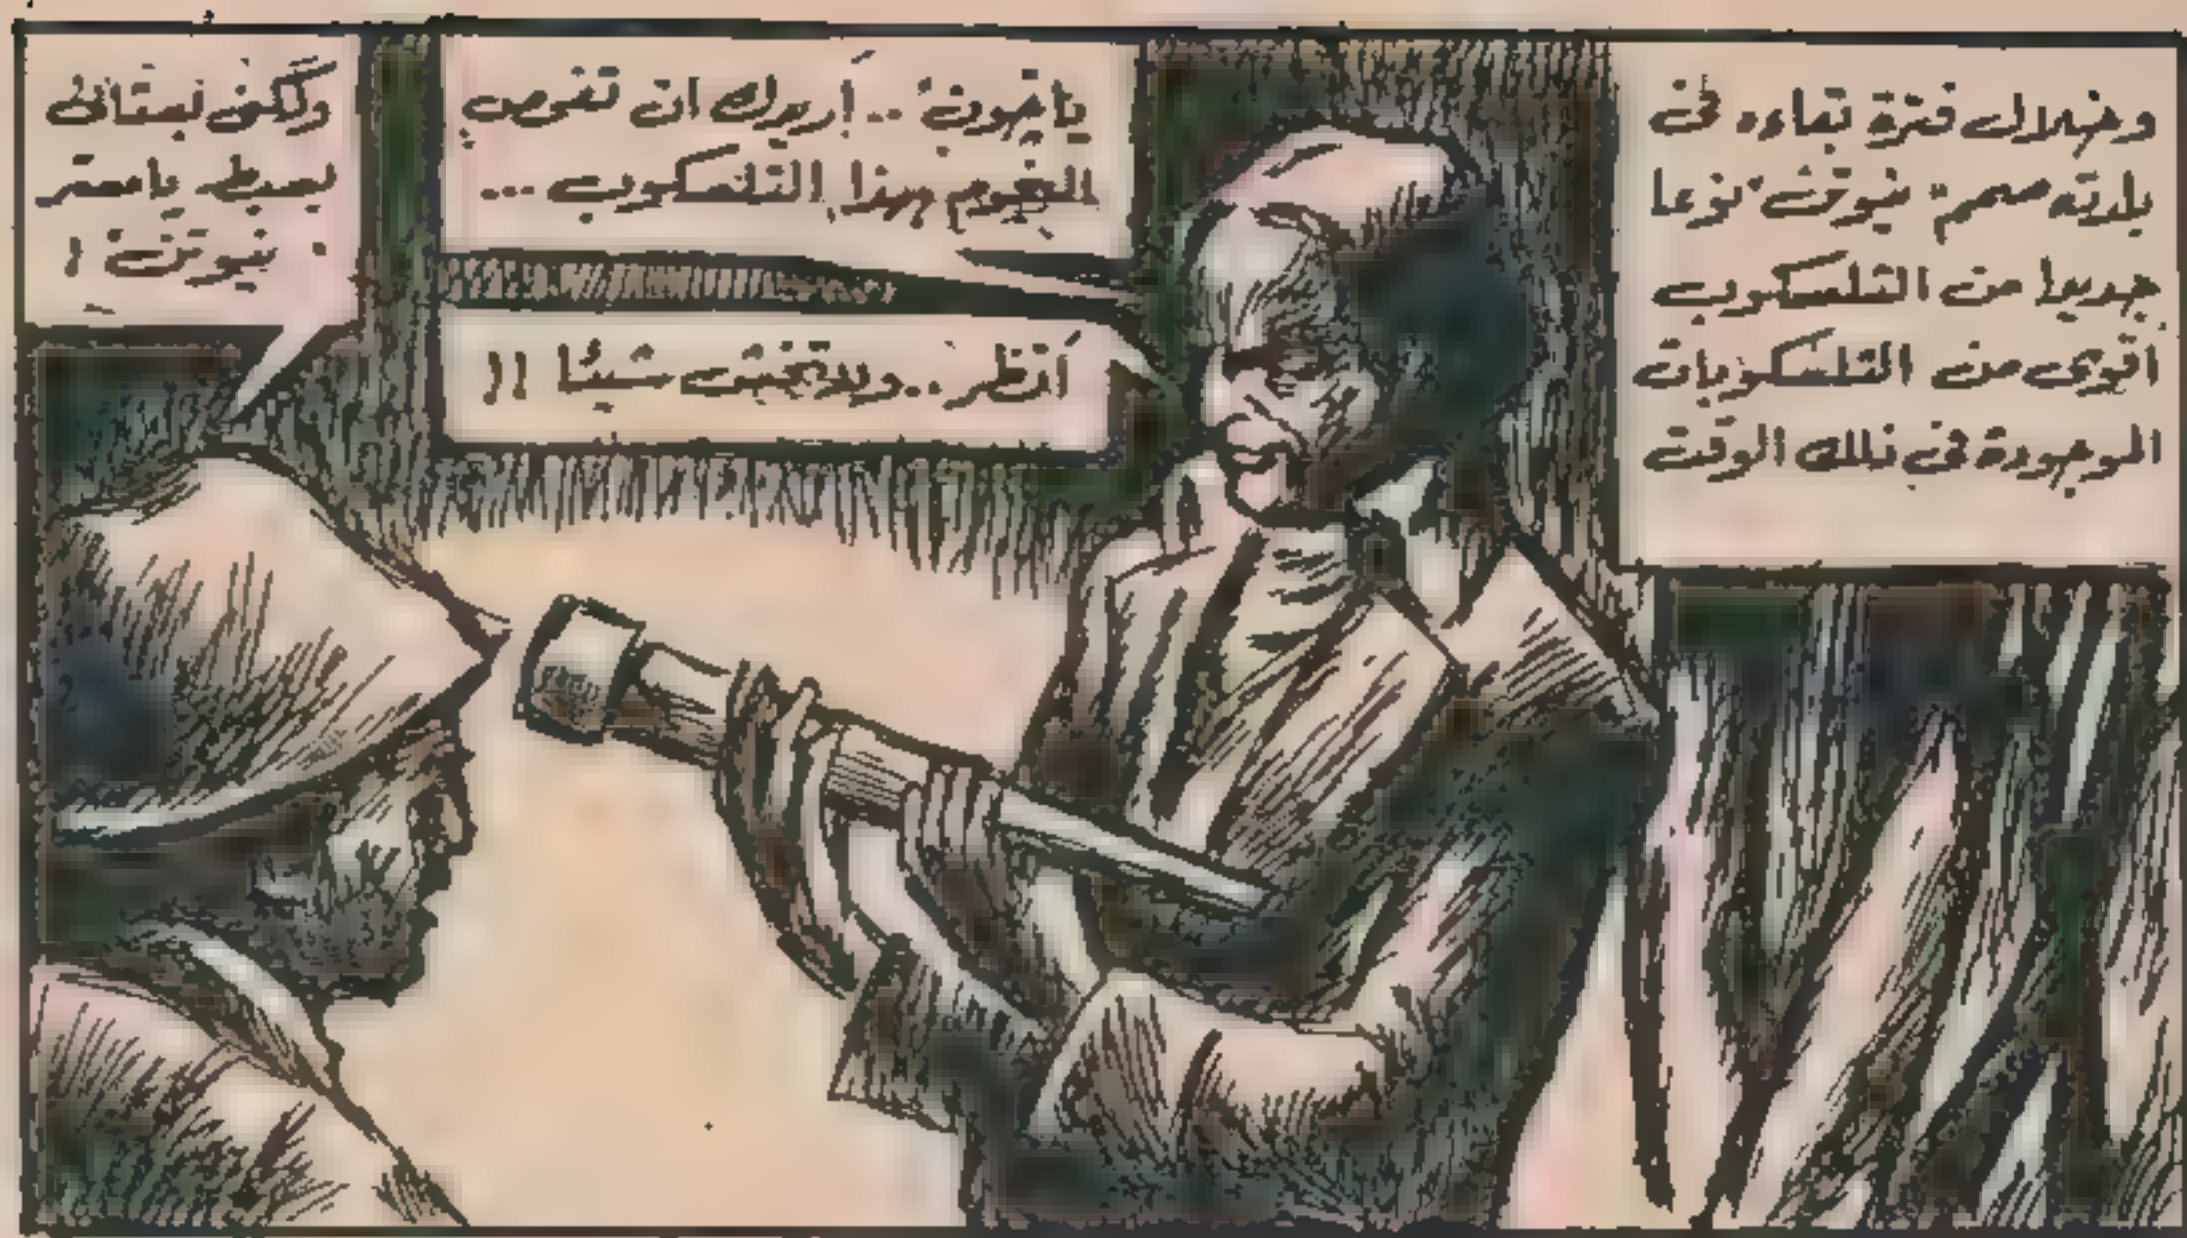 وخلال فترة بقاءه فى
بلدته صمم "نيوتن" نوعا
جديدا من التلسكوب
اقوى من التلسكوبات
الموجودة فى ذلك الوقت
ياجون .. أريدك ان تفحص
النجوم بهذا التلسكوب ...
أنظر .. ولا تخش شيئا !!
ولكنى بستانى
بسيط يا مستر
نيوتن !